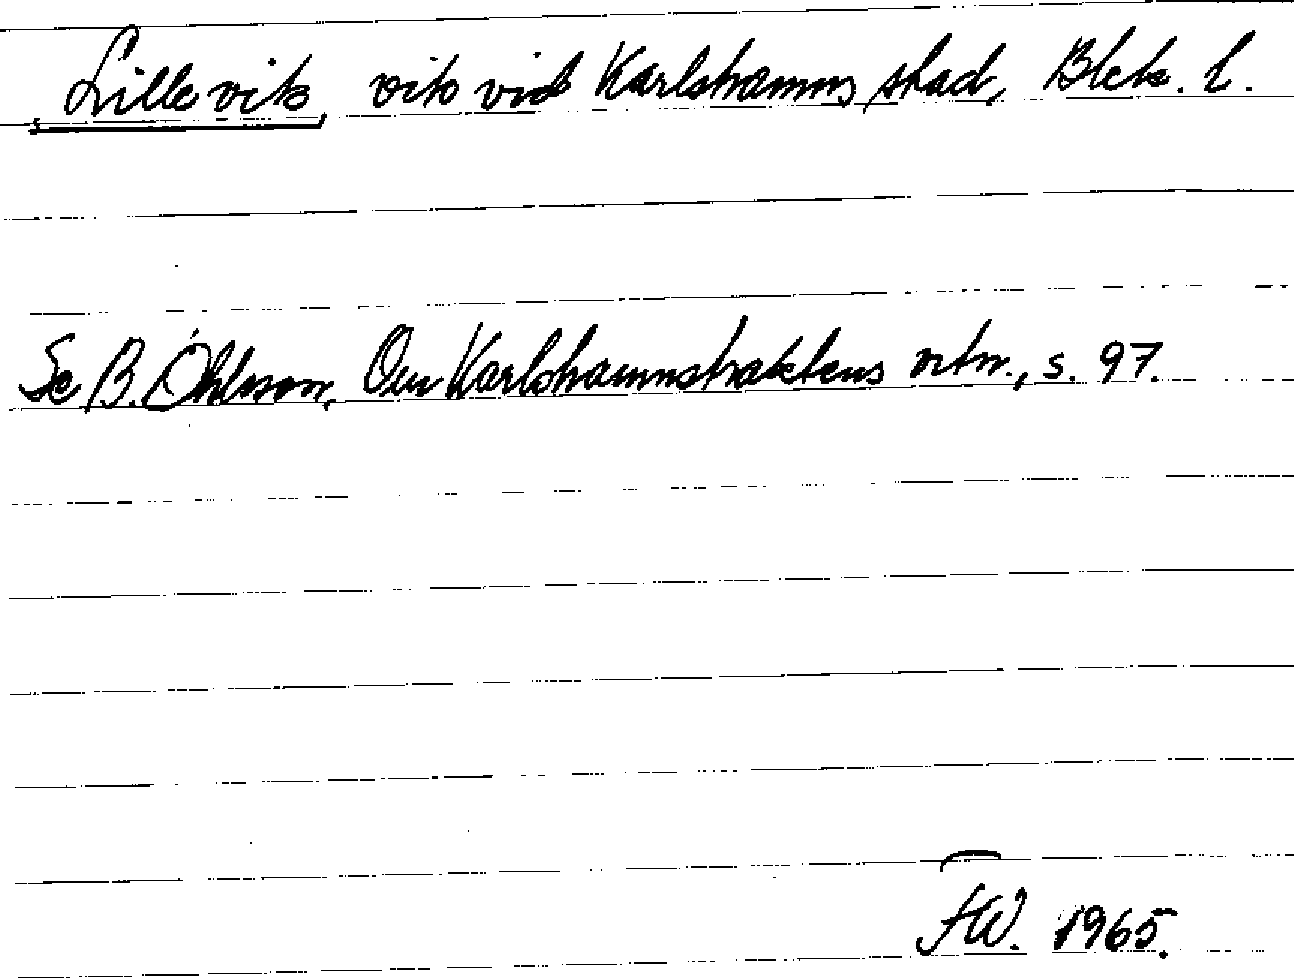 Lillevik, vik vid Karlshamns stad, Blek. l.
Se B. Ohlsson, Om Karlshamnstraktens ortn., s. 97.
FW. 1965.